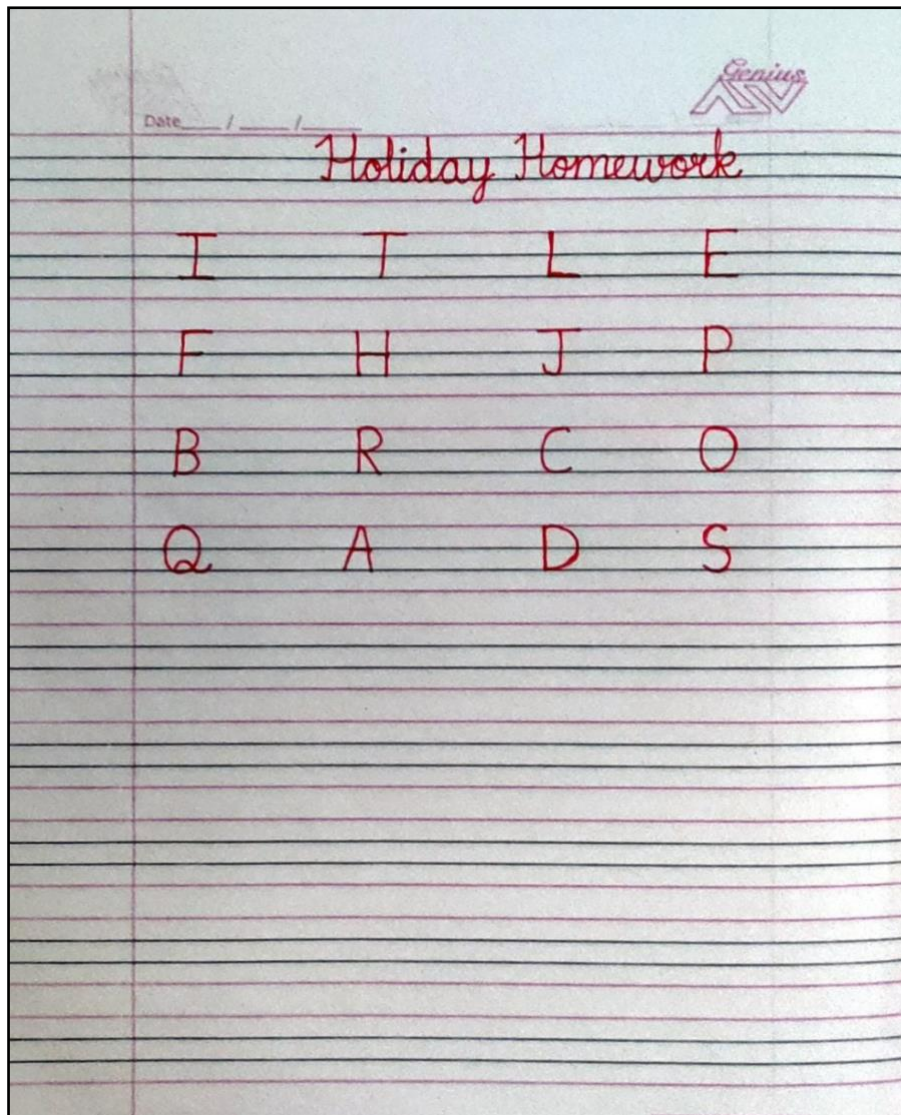 Genius
Date___/___/___
Holiday Homework
I T L E
F H J P
B R C O
Q A D S